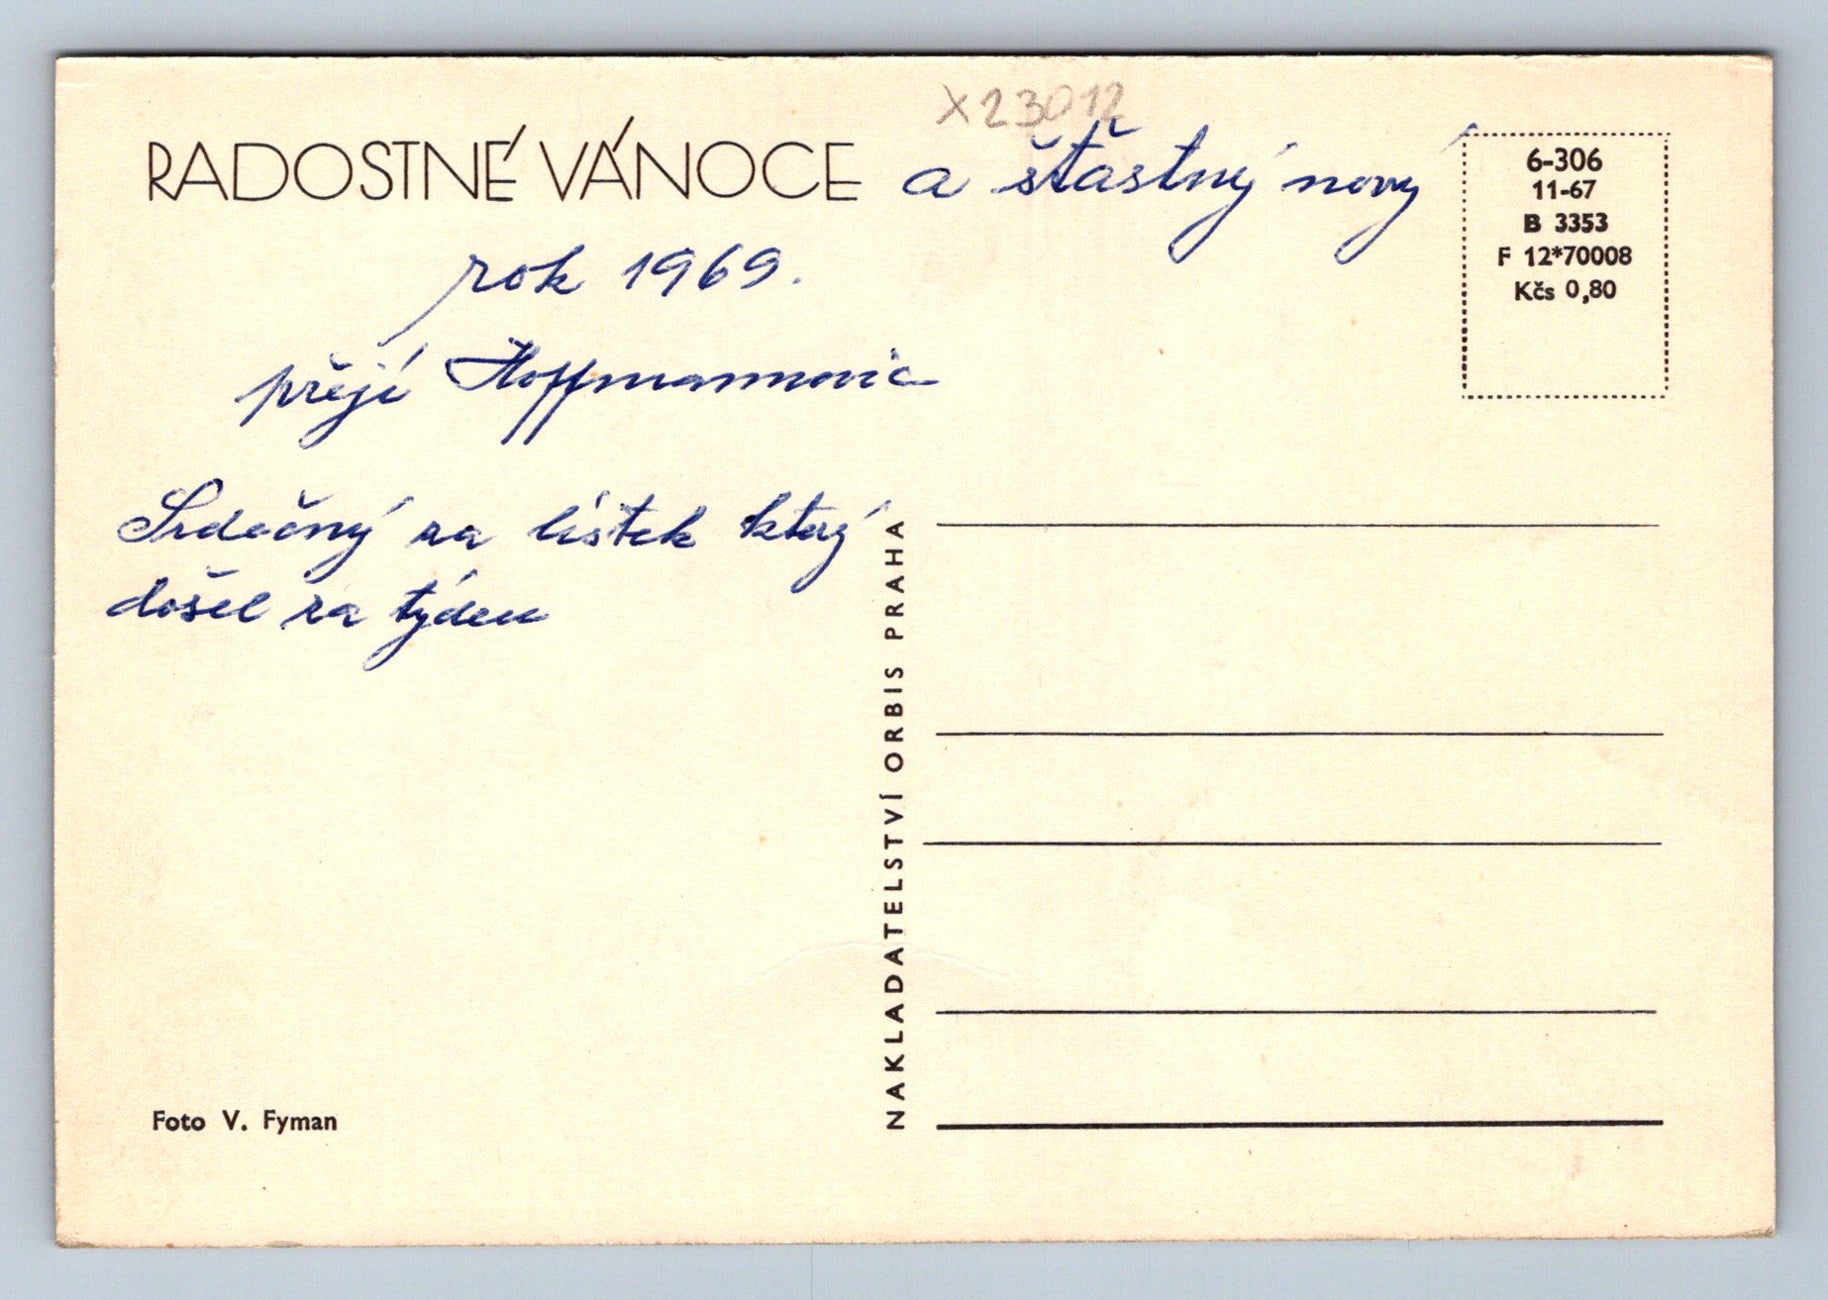 X23012
RADOSTNÉ VÁNOCE a šťastný nový
rok 1969.
přejí Hoffmannovic
Srdečný za lístek který
došel za týden
6-306
11-67
B 3353
F 12*70008
Kčs 0,80
NAKLADATELSTVÍ ORBIS PRAHA
Foto V. Fyman